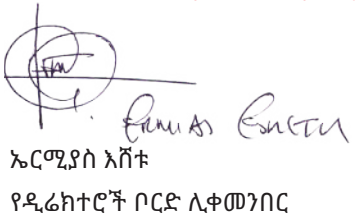 Ermias Eshetu
ኤርሚያስ እሸቱ
የዲሬክተሮች ቦርድ ሊቀመንበር